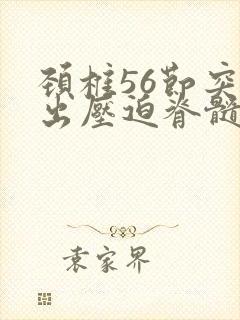 頚椎56節突
出壓迫脊髓
袁家界